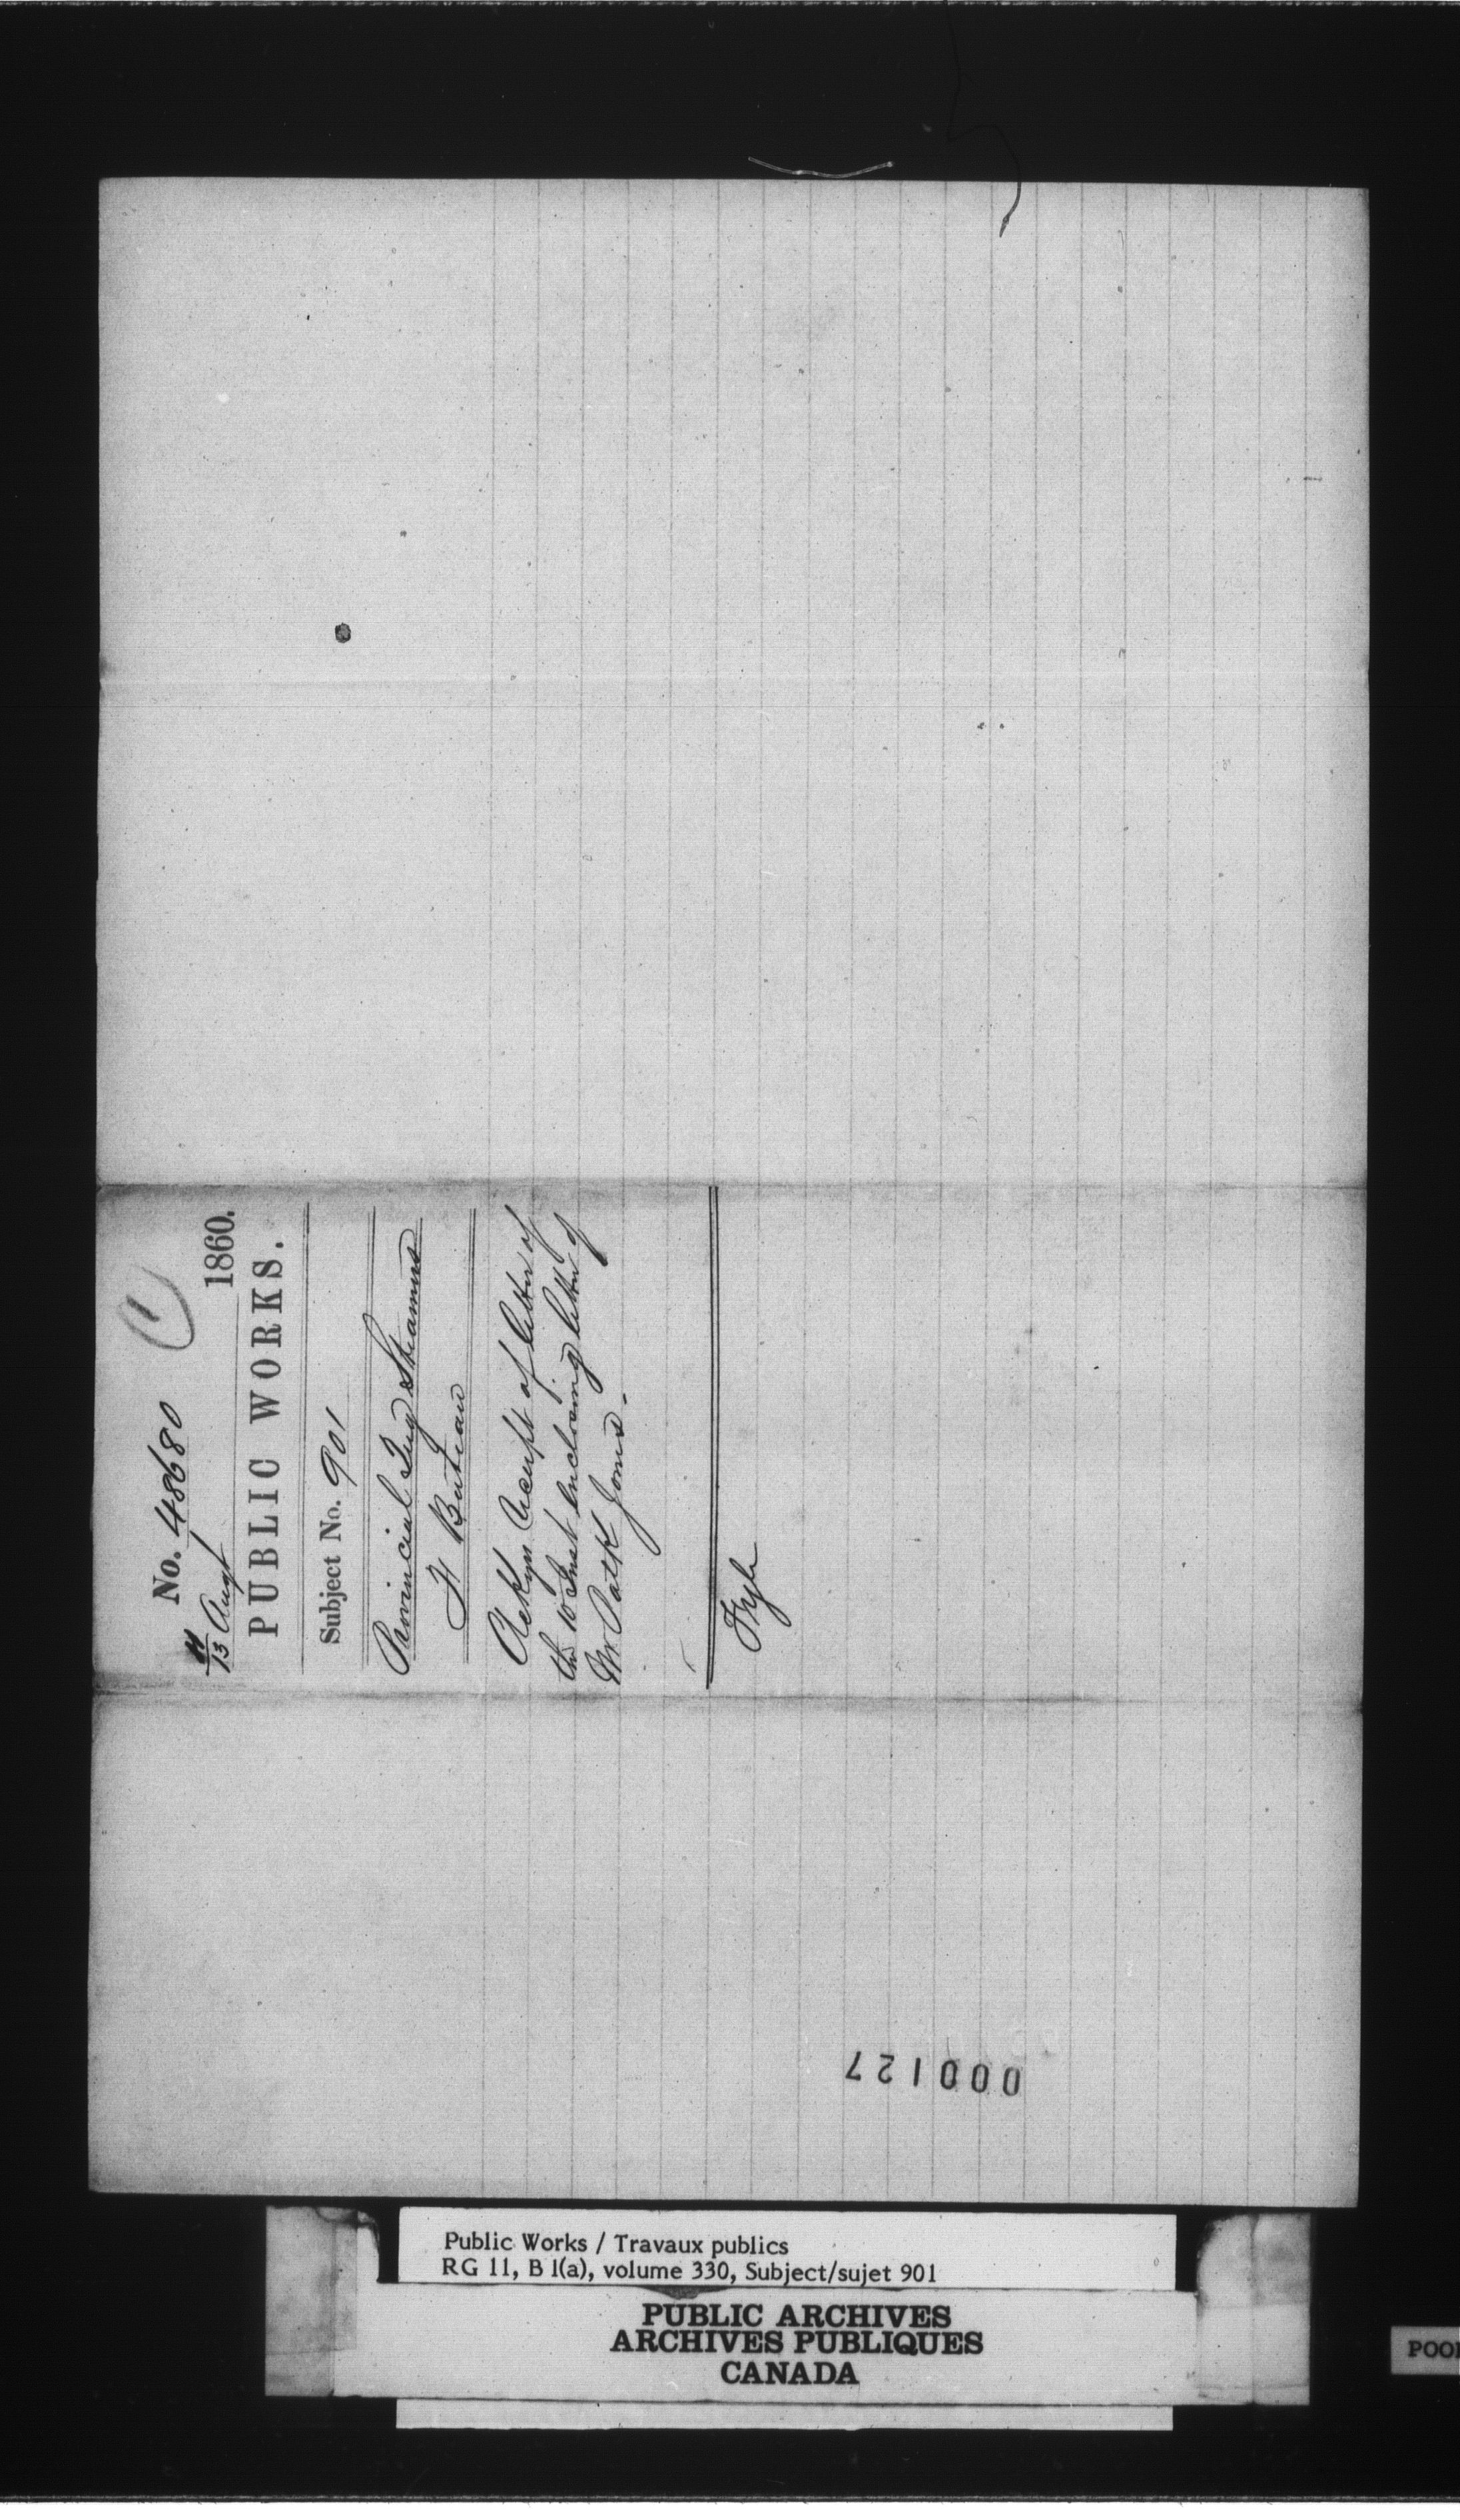 1
No. 48680
11/13 Augt 1860.
PUBLIC WORKS.
Subject No. 901
Provincial Tug Steamers
F Buteau
Ackgn receipt of letter of
the 10 Inst enclosing letter of
Mr Patk Jones.
Fyle
000127
Public Works / Travaux publics
RG 11, B 1(a), volume 330, Subject/sujet 901
PUBLIC ARCHIVES
ARCHIVES PUBLIQUES
CANADA